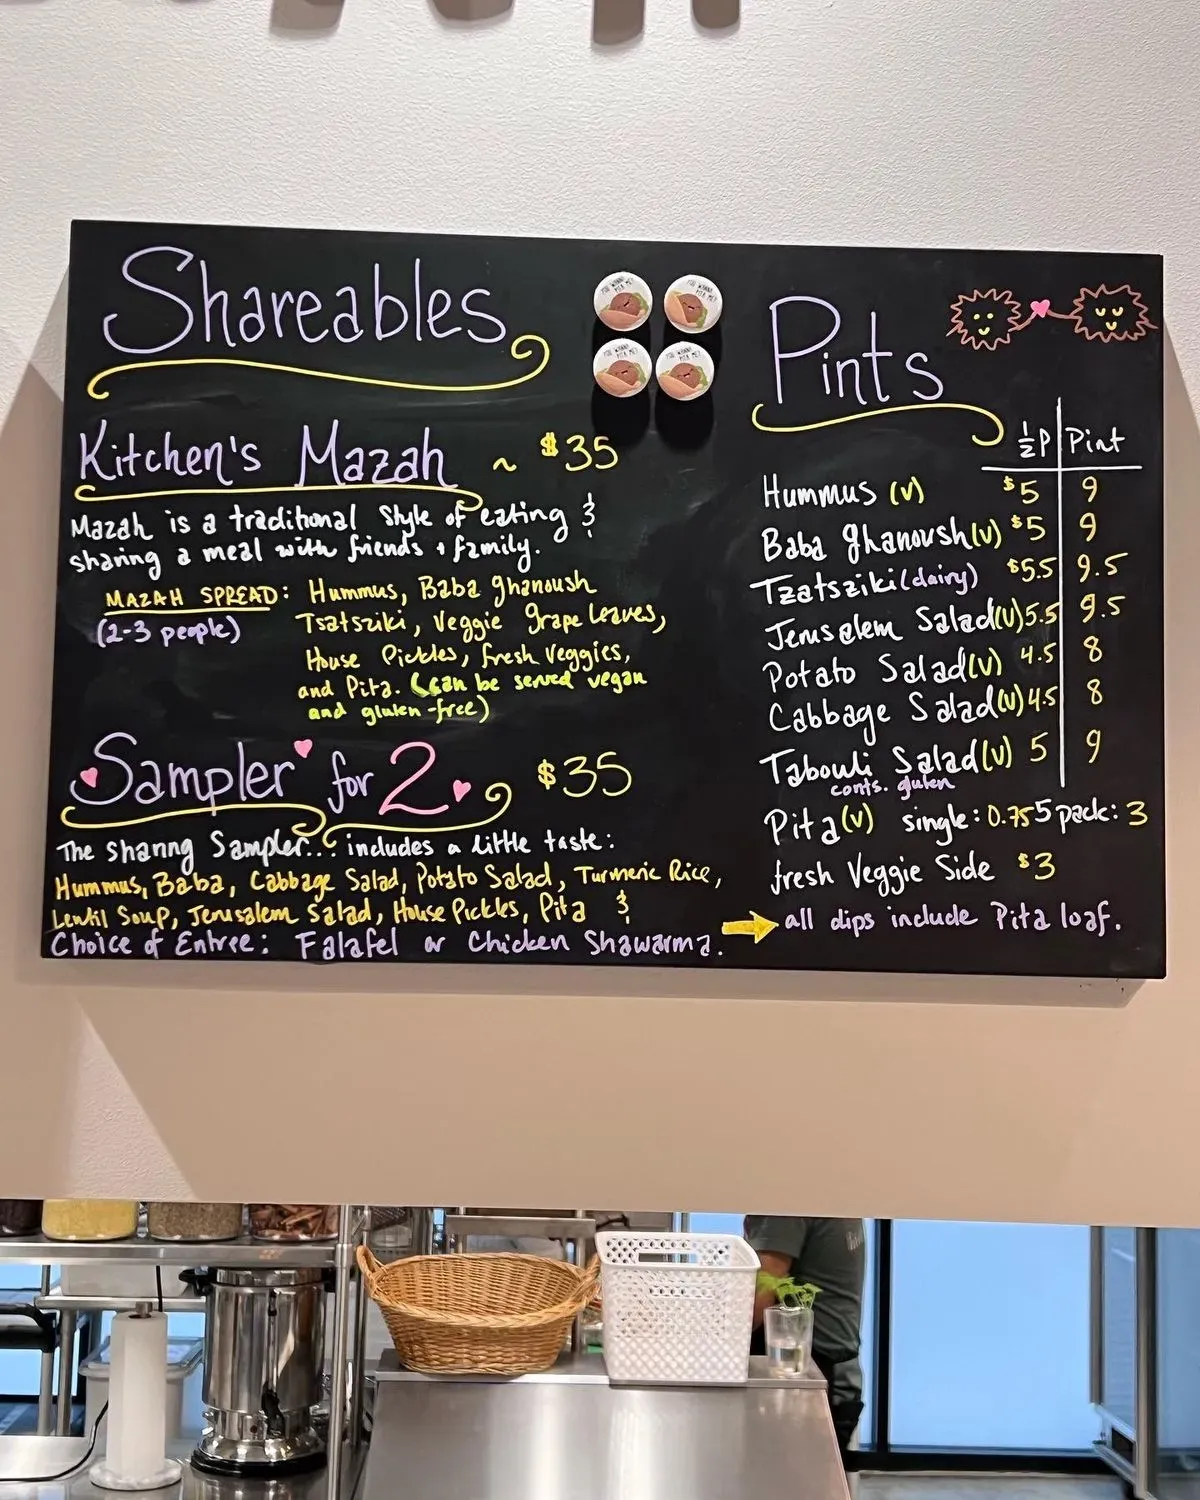 Shareables
YOU WANNA
PITA ME?
YOU WANNA
PITA ME?
YOU WANNA
PITA ME?
YOU WANNA
PITA ME?
Kitchen's Mazah ~ $35
Mazah is a traditional style of eating &
sharing a meal with friends + family.
MAZAH SPREAD: Hummus, Baba ghanoush
(2-3 people) Tsatsziki, Veggie grape leaves,
House Pickles, fresh veggies,
and Pita. (can be served vegan
and gluten-free)
Sampler for 2 $35
The sharing Sampler... includes a little taste:
Hummus, Baba, Cabbage Salad, Potato Salad, Turmeric Rice,
Lentil Soup, Jerusalem Salad, House Pickles, Pita &
Choice of Entree: Falafel or Chicken Shawarma.
Pints
½P Pint
Hummus (v) $5 9
Baba ghanoush (v) $5 9
Tzatsziki (dairy) $5.5 9.5
Jerusalem Salad (v) 5.5 9.5
Potato Salad (v) 4.5 8
Cabbage Salad (v) 4.5 8
Tabouli Salad (v) 5 9
conts. gluten
Pita (v) single: 0.75 5 pack: 3
fresh Veggie Side $3
all dips include Pita loaf.